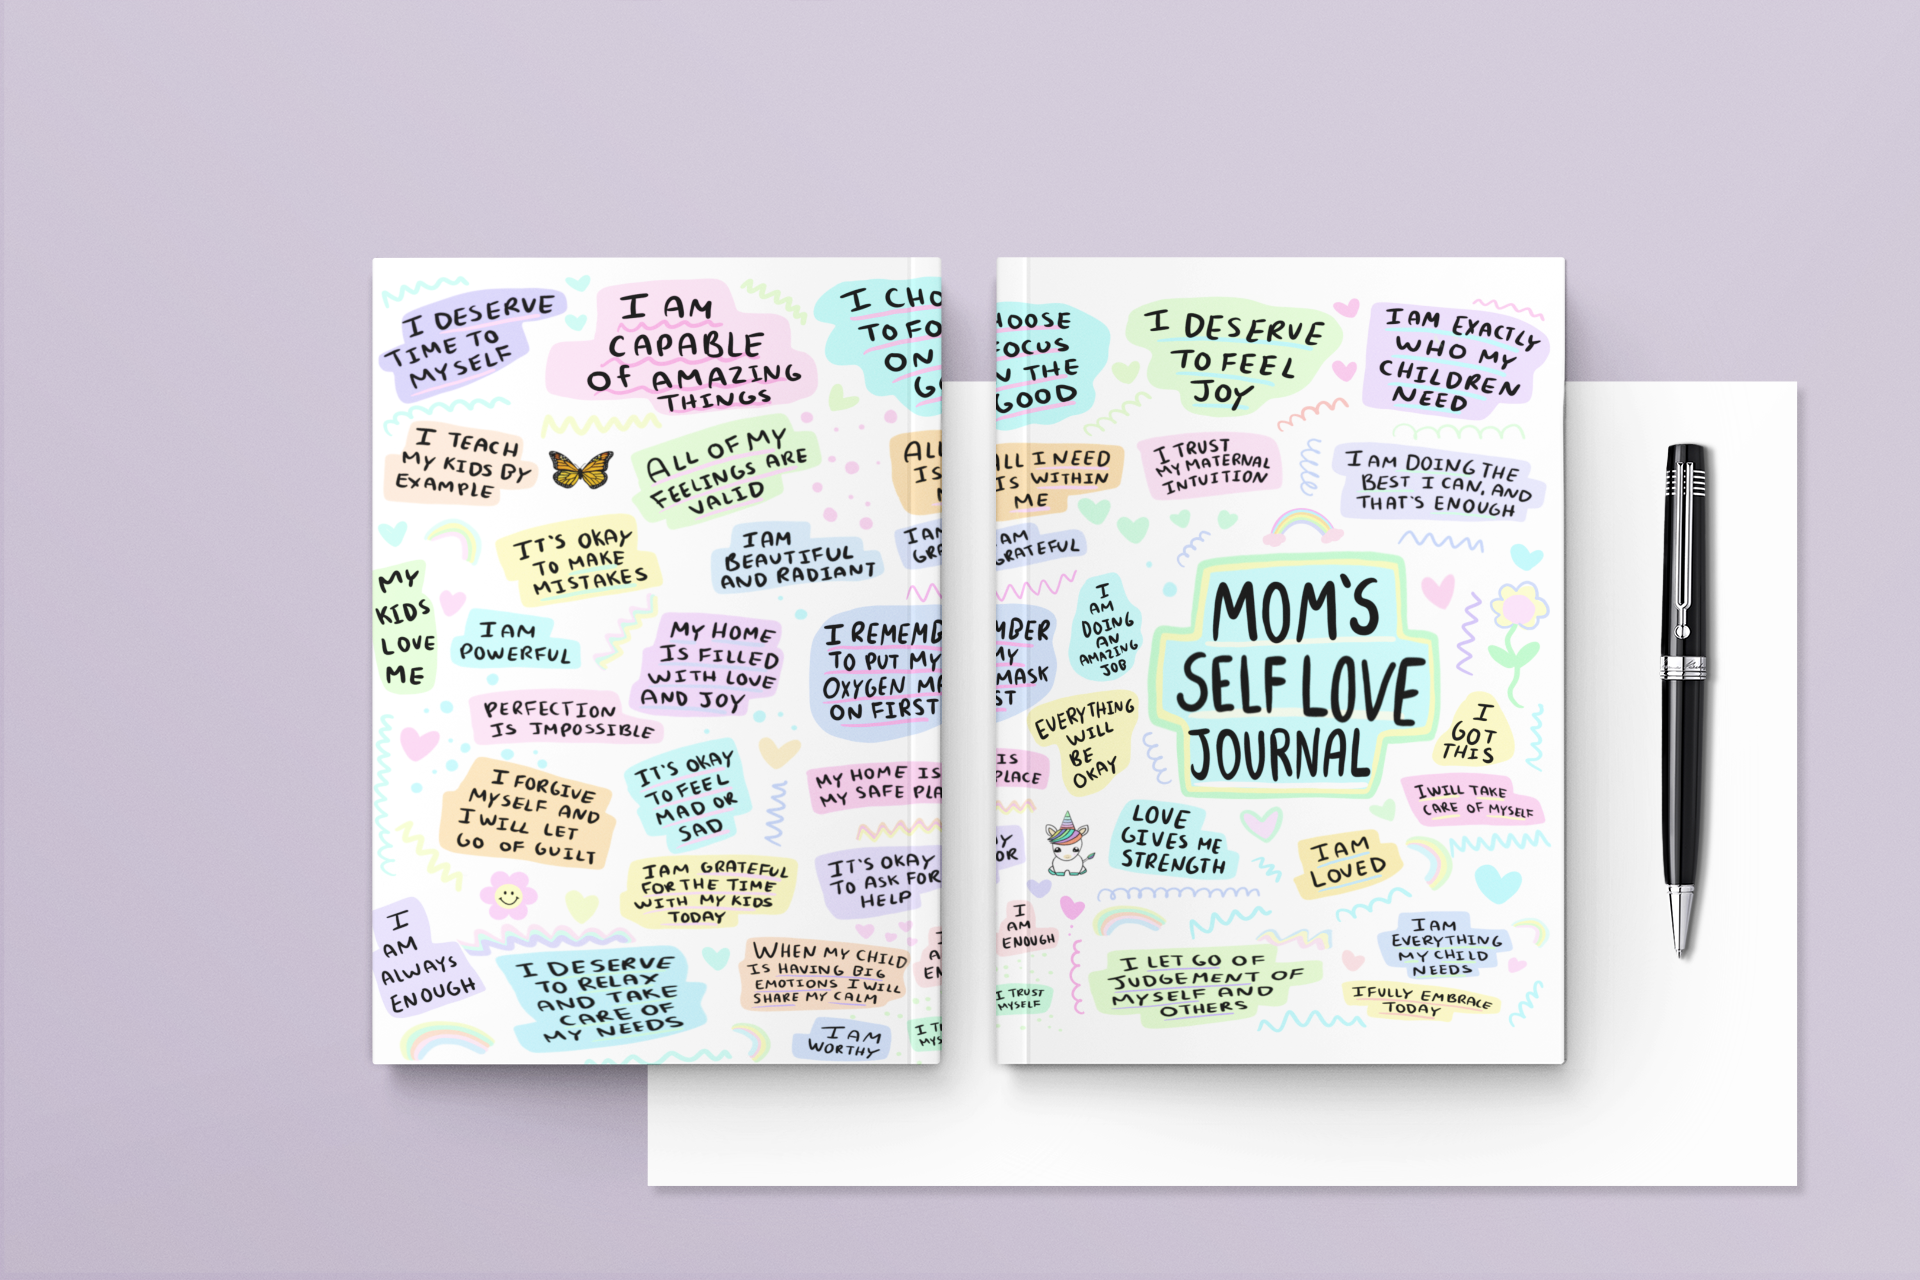 I DESERVE
TIME TO
MYSELF
I AM
CAPABLE
Of AMAZING
THINGS
I CHO
TO FO
ON
GO
I TEACH
MY KIDS BY
EXAMPLE
ALL OF MY
FEELINGS ARE
VALID
ALL
IS
IT'S OKAY
TO MAKE
MISTAKES
I AM
BEAUTIFUL
AND RADIANT
I AM
GRA
MY
KIDS
LOVE
ME
I AM
POWERFUL
MY HOME
IS FILLED
WITH LOVE
AND JOY
I REMEMB
TO PUT MY
OXYGEN MA
ON FIRST
PERFECTION
IS IMPOSSIBLE
I FORGIVE
MYSELF AND
I WILL LET
GO OF GUILT
IT'S OKAY
TO FEEL
MAD OR
SAD
MY HOME IS
MY SAFE PLA
I AM GRATEFUL
FOR THE TIME
WITH MY KIDS
TODAY
IT'S OKAY
TO ASK FOR
HELP
I
AM
ALWAYS
ENOUGH
I DESERVE
TO RELAX
AND TAKE
CARE OF
MY NEEDS
WHEN MY CHILD
IS HAVING BIG
EMOTIONS I WILL
SHARE MY CALM
I
A
EN
I AM
WORTHY
I T
MYS
HOOSE
FOCUS
N THE
GOOD
I DESERVE
TO FEEL
JOY
I AM EXACTLY
WHO MY
CHILDREN
NEED
ALL I NEED
IS WITHIN
ME
I TRUST
MY MATERNAL
INTUITION
I AM DOING THE
BEST I CAN, AND
THAT'S ENOUGH
AM
GRATEFUL
I
AM
DOING
AN
AMAZING
JOB
MOM'S
SELF LOVE
JOURNAL
MBER
MY
MASK
ST
EVERYTHING
WILL
BE
OKAY
I
GOT
THIS
IS
PLACE
I WILL TAKE
CARE OF MYSELF
Y
OR
LOVE
GIVES ME
STRENGTH
I AM
LOVED
I
AM
ENOUGH
I AM
EVERYTHING
MY CHILD
NEEDS
I LET GO OF
JUDGEMENT OF
MYSELF AND
OTHERS
I TRUST
MYSELF
I FULLY EMBRACE
TODAY